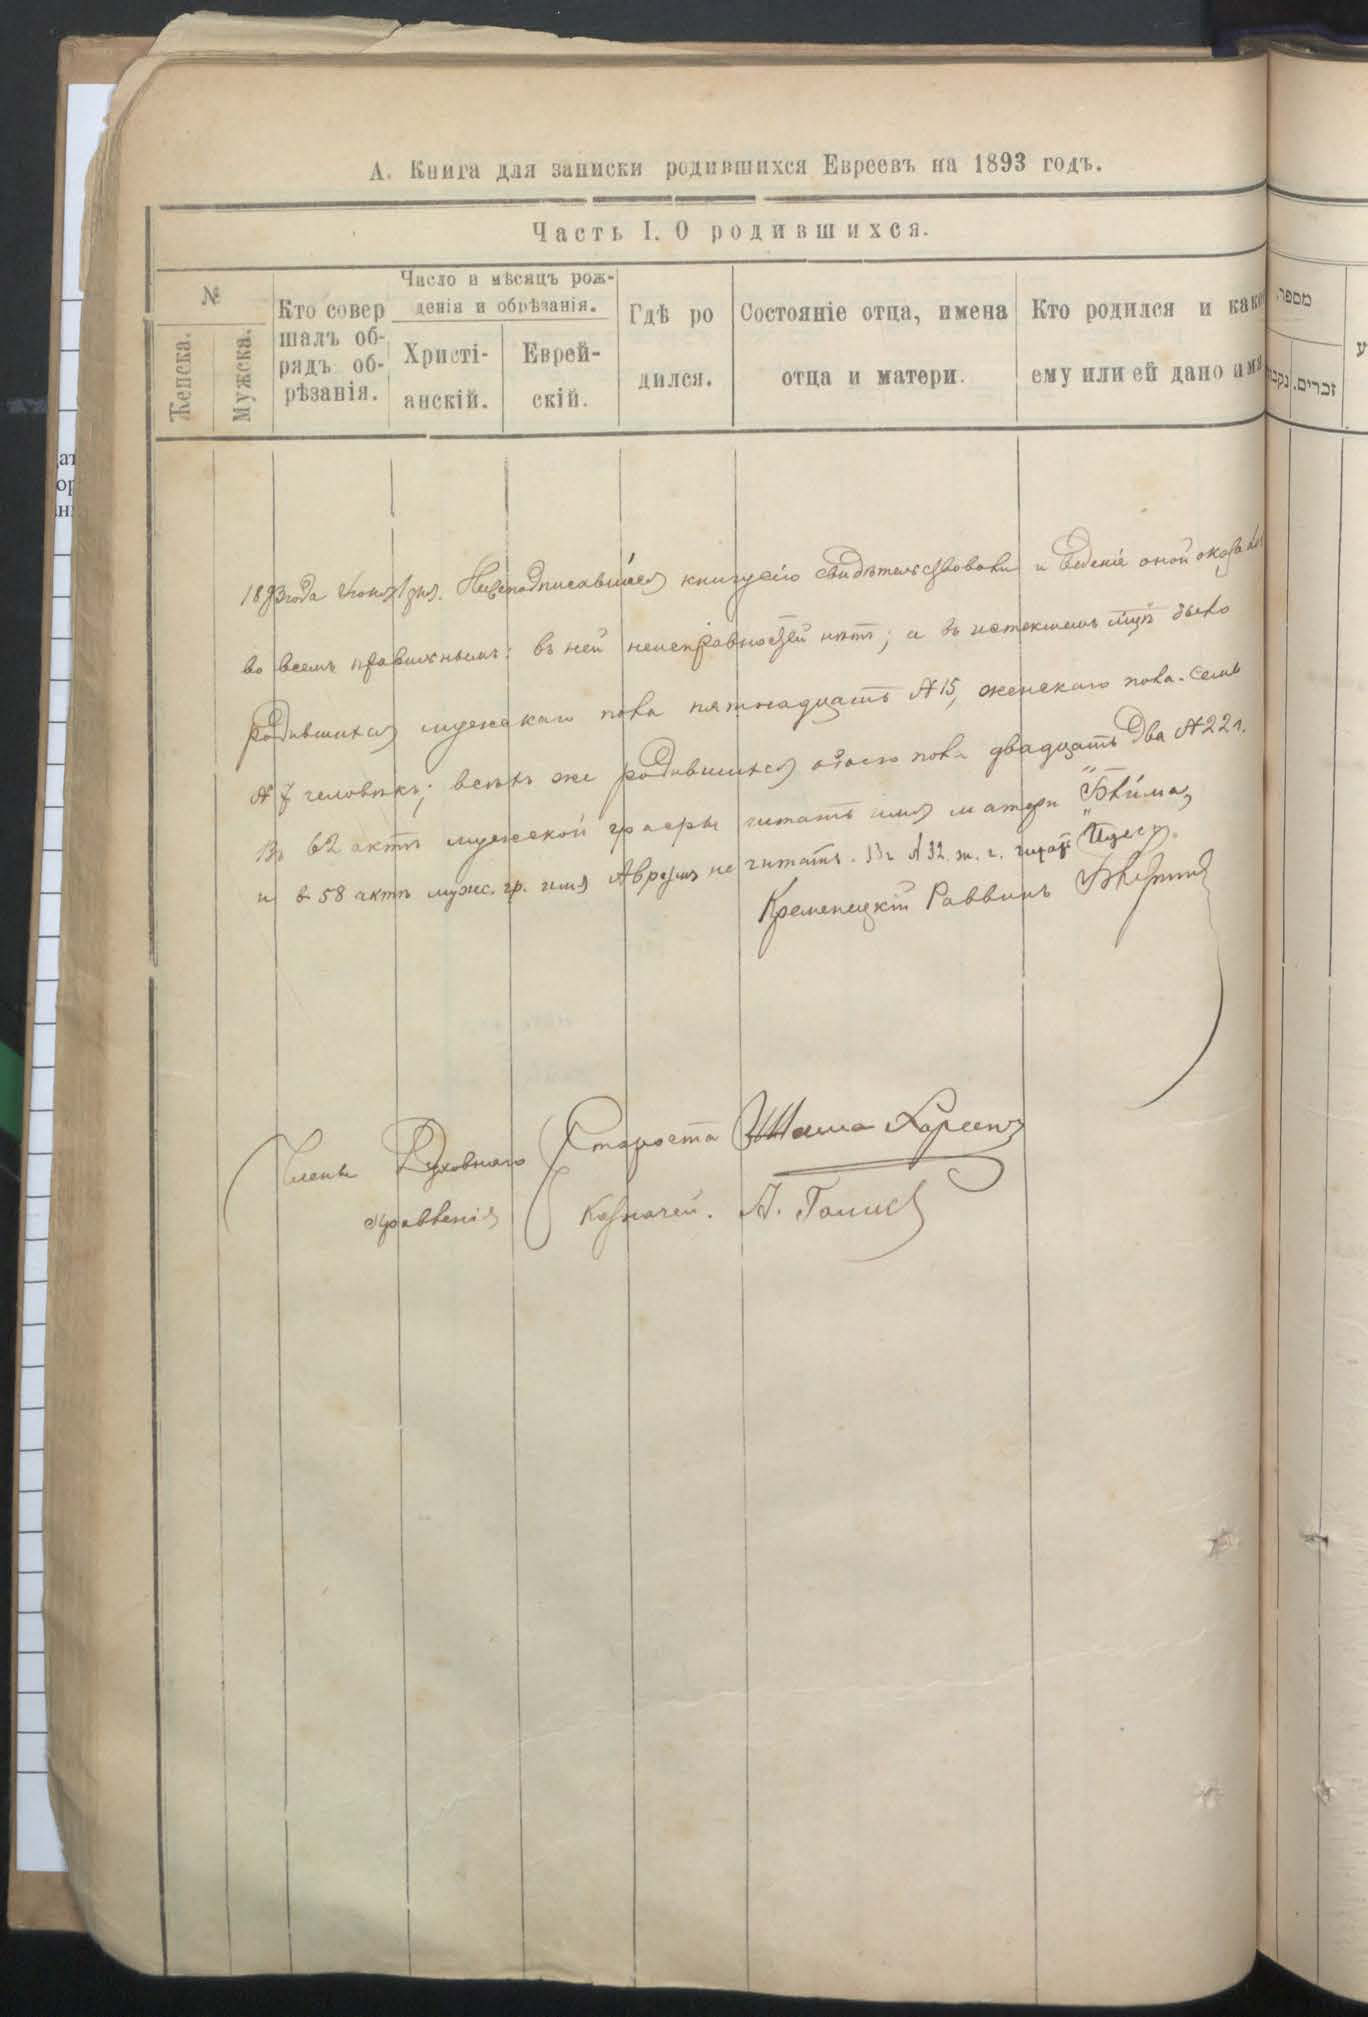 А. Книга для записки родившихся Евреевъ на 1893 годъ.
Часть I. О родившихся.
№
Женска.
Мужска.
Кто совер
шалъ об-
рядъ об-
рѣзанія.
Число и мѣсяцъ рож-
денія и обрѣзанія.
Христі-
анскій.
Еврей-
скій.
Гдѣ ро
дился.
Состояніе отца, имена
отца и матери.
Кто родился и како
ему или ей дано имя
מספר.
זכרים.
1893 года Іюня 1 дня. Нижеподписавшіеся книгу сію свидѣтельствовали и веденіе оной оказалось
во всемъ правильнымъ: въ ней неисправностей нѣтъ; а въ истекшемъ м-цѣ было
родившихся мужскаго пола пятнадцать № 15, женскаго пола-семь
№ 7 человѣкъ; всѣхъ же родившихся обоего пола двадцать два № 22 ч.
Въ 62 актѣ мужской графы читать имя матери "Блима"
и въ 58 актѣ мужс. гр. имя Аврумъ не читать. Въ № 32 ж. г. читать
Кременецкій Раввинъ
Члены Духовнаго
Правленія
Староста
Казначей. А.